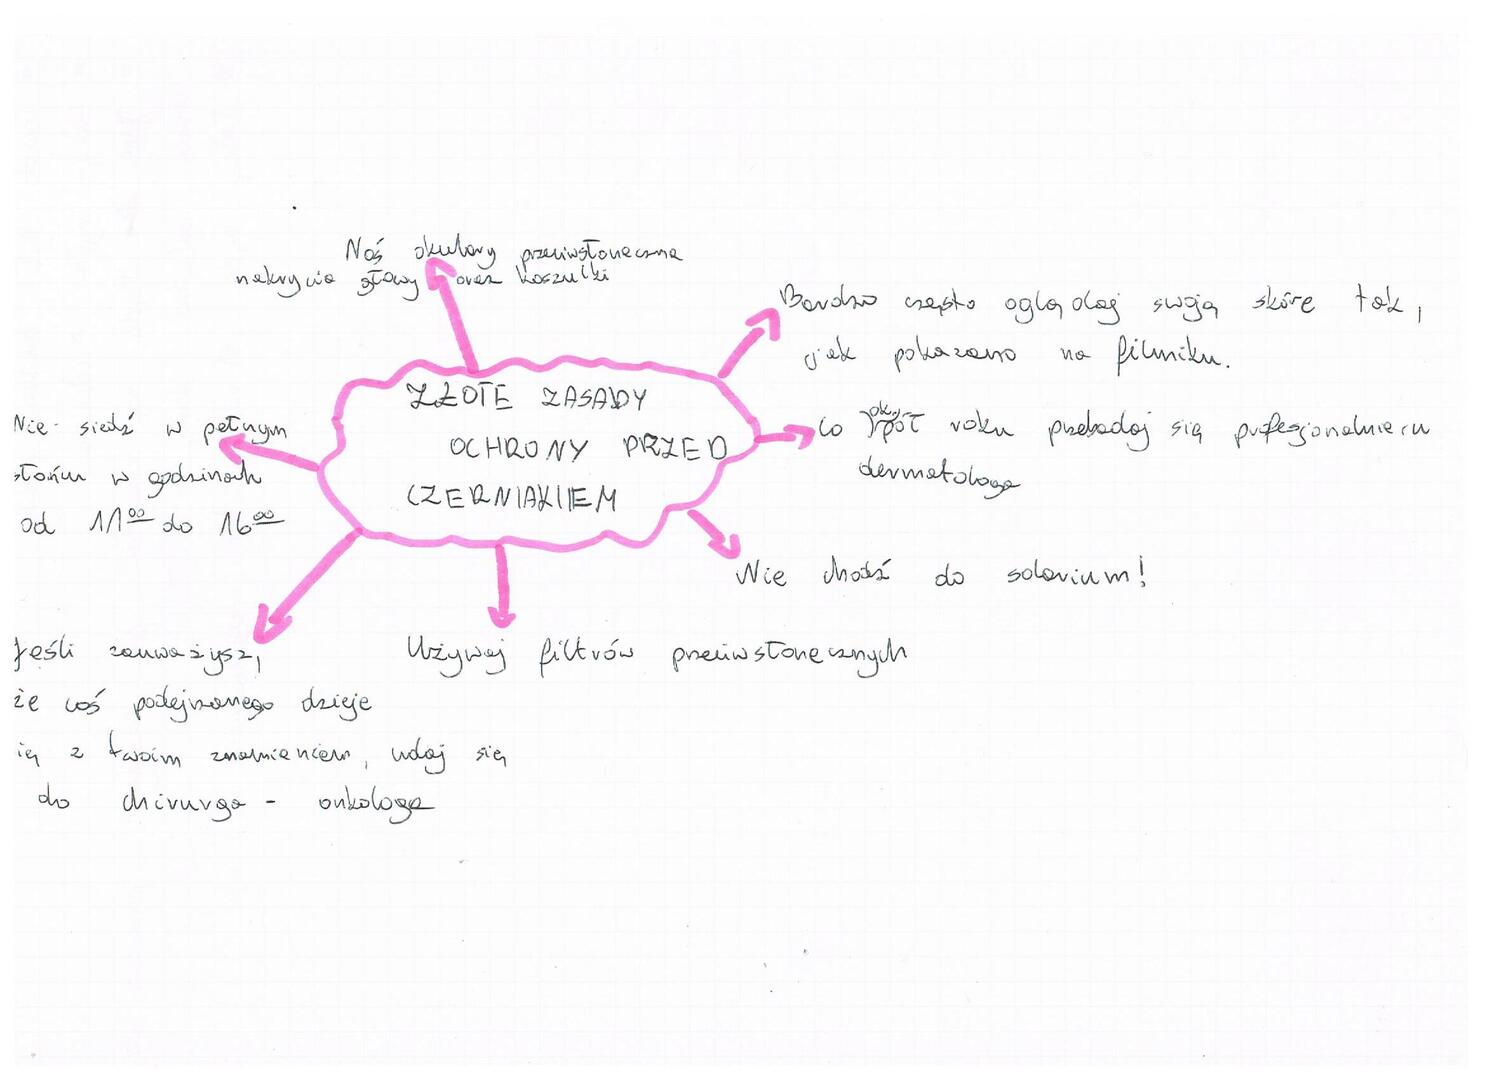 Noś okulary przeciwsłoneczne
nakrycie głowy oraz koszulki
Bardzo często oglądaj swoją skórę tak,
jak pokazano na filmiku.
ZŁOTE ZASADY
OCHRONY PRZED
CZERNIAKIEM
Nie siedź w pełnym
słońcu w godzinach
od 11⁰⁰ do 16⁰⁰
Co pół roku przebadaj się profesjonalnie u
dermatologa
Nie chodź do solarium!
Jeśli zauważysz,
że coś podejrzanego dzieje
ię z twoim znamieniem, udaj się
do chirurga - onkologa
Używaj filtrów przeciwsłonecznych